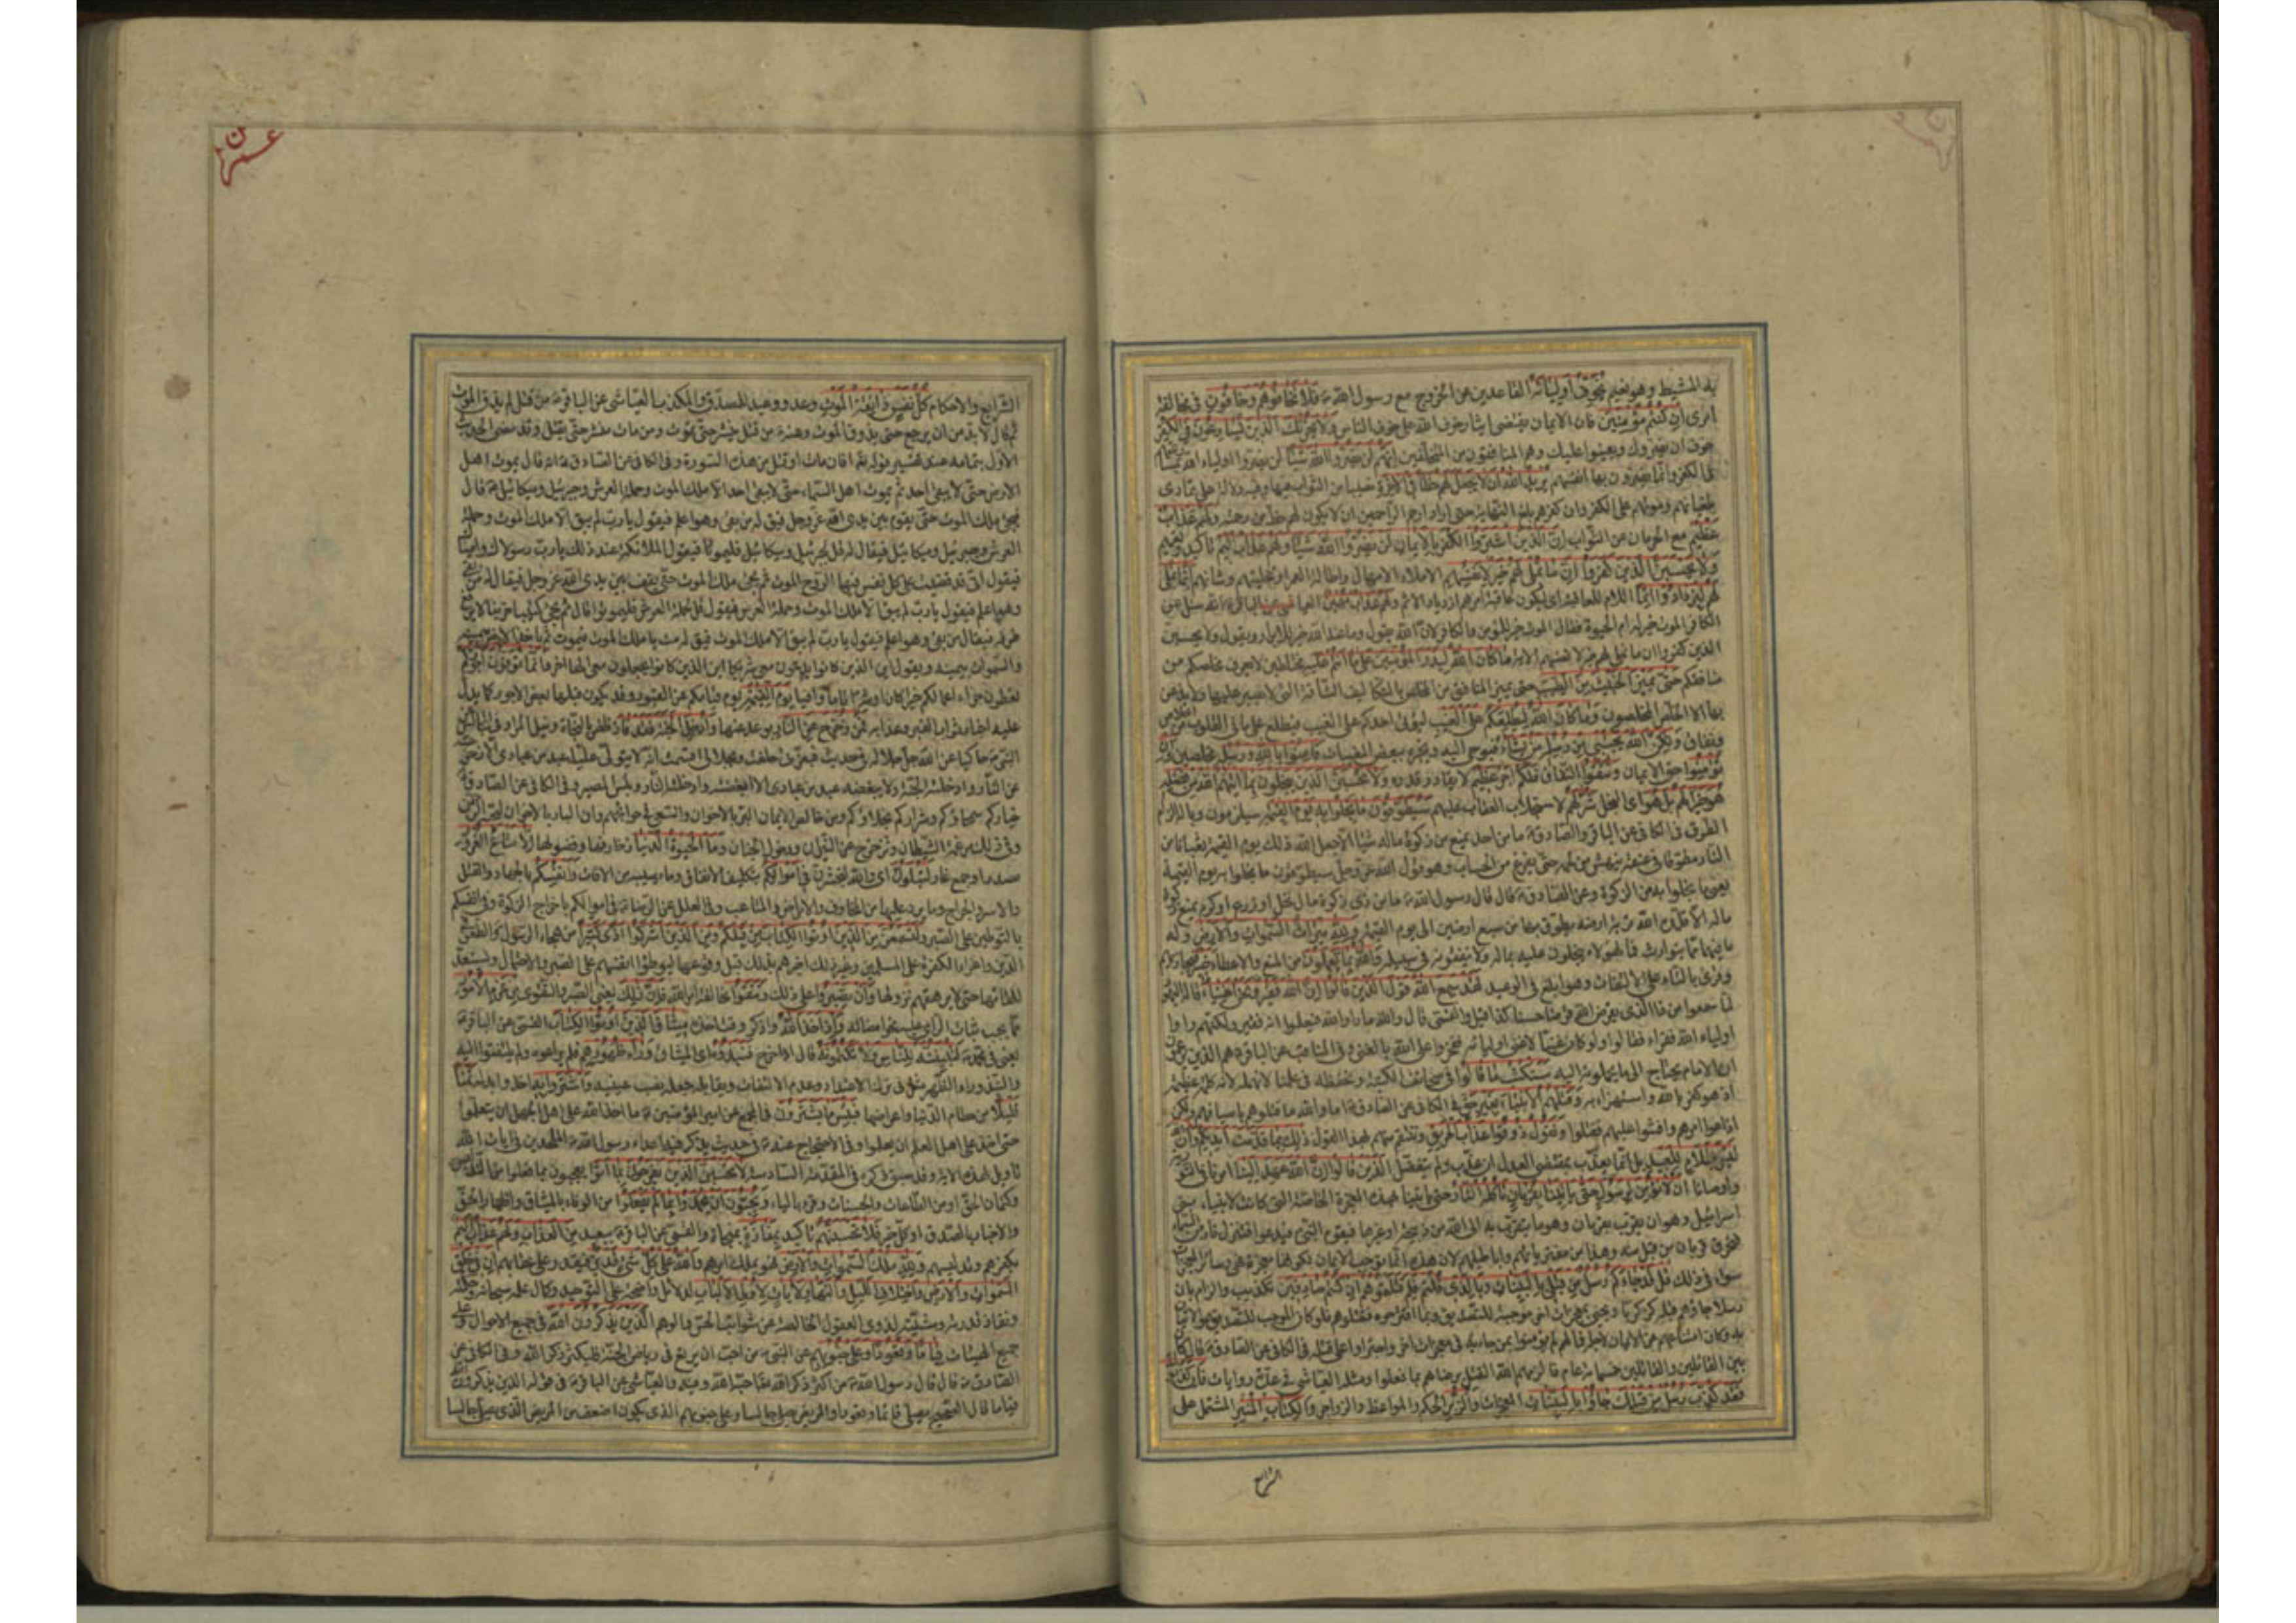 يخوف أوليائه القاعدين عن الخروج مع رسول الله فلا تخافوهم وخافون في مخالفة
امرى ان كنتم مؤمنين فان الايمان يقتضى ايثار خوف الله على خوف الناس ولا يحزنك الذين يسارعون في الكفر
خوف ان يضروك ويعينوا عليك وهم المنافقون من المتخلفين انهم لن يضروا الله شيئا لن يضروا اولياء الله
يريد الله ان لا يجعل لهم حظا في الاخرة نصيبا من الثواب فيها وفيه دلالة على تمادى
طغيانهم وموتهم على الكفر وان كفرهم بلغ الغاية حتى اراد ارحم الراحمين ان لا يكون لهم حظ من رحمته ولهم عذاب
عظيم مع الحرمان عن الثواب ان الذين اشتروا الكفر بالايمان لن يضروا الله شيئا ولهم عذاب اليم تاكيد وتعميم
ولا يحسبن الذين كفروا ان ما نملى لهم خير لانفسهم الاملاء الامهال واطالة العمر وتخليتهم وشانهم انما نملى
لهم ليزدادوا اثما اللام للعاقبة اى ليكون عاقبة امرهم ازدياد الاثم ولهم عذاب مهين العياشى عن الباقر انه سئل عن
الكافر الموت خير له ام الحيوة فقال الموت خير للمؤمن والكافر لان الله يقول وما عند الله خير للابرار ويقول ولا يحسبن
الذين كفروا ان ما نملى لهم خير لانفسهم الاية ما كان الله ليذر المؤمنين على ما انتم عليه مختلطين لا يعرف مخلصكم من
منافقكم حتى يميز الخبيث من الطيب حتى يميز المنافق من المخلص بالتكاليف الشاقة التى لا يصبر عليها ولا يذعن
بها الا الخلص المخلصون وما كان الله ليطلعكم على الغيب ليؤتى احدكم علم الغيب فيطلع على ما في القلوب
ونفاق ولكن الله يجتبى من رسله من يشاء فيوحى اليه ويخبره ببعض المغيبات فامنوا بالله ورسله مخلصين وان
تؤمنوا حق الايمان وتتقوا النفاق فلكم اجر عظيم لا يقادر قدره ولا يحسبن الذين يبخلون بما اتيهم الله من فضله
هو خيرا لهم بل هو اى البخل شر لهم لاستجلاب العقاب عليهم سيطوقون ما بخلوا به يوم القيمة سيلزمون وباله الزام
الطوق في الكافى عن الباقر والصادق ما من احد يمنع من زكوة ماله شيئا الا جعل الله ذلك يوم القيمة ثعبانا من
النار مطوقا في عنقه ينهش من لحمه حتى يفرغ من الحساب وهو قول الله عز وجل سيطوقون ما بخلوا به يوم القيمة
يعنى ما بخلوا به من الزكوة وعن الصادق قال قال رسول الله ما من ذى زكوة مال نخل او زرع او كرم يمنع زكوة
ماله الا قلده الله تربة ارضه يطوق بها من سبع ارضين الى يوم القيمة ولله ميراث السموات والارض وله
ما فيهما مما يتوارث فما لهؤلاء يبخلون عليه بماله ولا ينفقونه في سبيله والله بما تعملون من المنع والاعطاء خبير
وقرئ بالتاء على الالتفات وهو ابلغ في الوعيد لقد سمع الله قول الذين قالوا ان الله فقير ونحن اغنياء قاله اليهود
لما سمعوا من ذا الذى يقرض الله قرضا حسنا كذا قيل والقمى قال والله ما راوا الله فيعلموا انه فقير ولكنهم راوا
اولياء الله فقراء فقالوا لو كان غنيا لاغنى اولياءه ففخروا على الله بالغنى وفى المناقب عن الباقر هم الذين يزعمون
ان الامام يحتاج الى ما يحملونه اليه سنكتب ما قالوا في صحائف الكتبة ونحفظه في علمنا لا نهمله لانه كلمة عظيمة
اذ هو كفر بالله واستهزاء به وقتلهم الانبياء بغير حق في الكافى عن الصادق اما والله ما قتلوهم باسيافهم ولكن
اذاعوا امرهم وافشوا عليهم فقتلوا ونقول ذوقوا عذاب الحريق وننتقم منهم بهذا القول ذلك بما قدمت ايديكم وان الله
ليس بظلام للعبيد بل انما يعذب بمقتضى العدل ان عذب ولم يتفضل الذين قالوا ان الله عهد الينا امرنا في التورية
واوصانا ان لا نؤمن لرسول حتى ياتينا بقربان تاكله النار حتى ياتينا بهذه المعجزة الخاصة التى كانت لانبياء بنى
اسرائيل وهو ان يقرب بقربان وهو ما يتقرب به الى الله من ذبيحة او غيرها فيقوم النبى فيدعو فتنزل نار من السماء
فتحرق قربان من قبل منه وهذا من مفترياتهم واباطيلهم لان هذه انما توجب الايمان لكونها معجزة فهى وسائر المعجزات
سواء في ذلك قل قد جاءكم رسل من قبلى بالبينات وبالذى قلتم فلم قتلتموهم ان كنتم صادقين تكذيب والزام بان
رسلا جاؤهم قبله كزكريا ويحيى بمعجزات اخر موجبة للتصديق وبما اقترحوه فقتلوهم فلو كان الموجب للتصديق هو الاتيان
به وكان امتناعهم عن الايمان لاجله فما لهم لم يؤمنوا بمن جاء به في معجزات اخر واجتراوا على قتله في الكافى عن الصادق قال كان
بين القاتلين والقائلين خمسمائة عام فالزمهم الله القتل برضاهم بما فعلوا ومثله العياشى في عدة روايات فان كذبوك
فقد كذب رسل من قبلك جاؤا بالبينات المعجزات والزبر الحكم والمواعظ والزواجر والكتاب المنير المشتمل على
الشرايع
عمرن
الشرايع والاحكام كل نفس ذائقة الموت وعد ووعيد للمصدق والمكذب العياشى عن الباقر من قتل لم يذق الموت
ثم قال لا بد من ان يرجع حتى يذوق الموت وعنه من قتل ينشر حتى يموت ومن مات ينشر حتى يقتل وقد مضى الحديث
الاول بتمامه عند تفسير قوله افان مات او قتل من هذه السورة وفى الكافى عن الصادق انه قال يموت اهل
الارض حتى لا يبقى احد ثم يموت اهل السماء حتى لا يبقى احد الا ملك الموت وحملة العرش وجبرئيل وميكائيل قال
فيجئ ملك الموت حتى يقوم بين يدى الله عز وجل فيق له من بقى وهو اعلم فيقول يا رب لم يبق الا ملك الموت وحملة
العرش وجبرئيل وميكائيل فيقال له قل لجبرئيل وميكائيل فليموتا فيقول الملائكة عند ذلك يا رب رسولاك وامينا
فيقول انى قد قضيت على كل نفس فيها الروح الموت ثم يجئ ملك الموت حتى يقف بين يدى الله عز وجل فيقال له من بقى
وهو اعلم فيقول يا رب لم يبق الا ملك الموت وحملة العرش فيقول قل لحملة العرش فليموتوا قال ثم يجئ كئيبا حزينا لا يرفع
طرفه فيقال من بقى وهو اعلم فيقول يا رب لم يبق الا ملك الموت فيق له مت يا ملك الموت فيموت ثم ياخذ الارض بيمينه
والسموات بيمينه ويقول اين الذين كانوا يدعون معى شريكا اين الذين كانوا يجعلون معى الها اخر وانما توفون اجوركم
تعطون جزاء اعمالكم خيرا كان او شرا تاما وافيا يوم القيمة يوم قيامكم عن القبور وقد يكون قبلها بعض الاجور كما يدل
عليه اخبار ثواب القبر وعذابه فمن زحزح عن النار بوعد عنها وادخل الجنة فقد فاز ظفر بالنجاة ونيل المراد
النبى حاكيا عن الله جل جلاله في حديث فبعزتى حلفت وبجلالى اقسمت انه لا يتولى عليا عبد من عبادى الا زحزحته
عن النار وادخلته الجنة ولا يبغضه عبد من عبادى الا ابغضته وادخلته النار وبئس المصير وفى الكافى عن الصادق
خياركم سمحاؤكم وشراركم بخلاؤكم ومن خالص الايمان البر بالاخوان والسعى في حوائجهم وان البار بالاخوان ليحبه الرحمن
وفى ذلك مرغمة الشيطان وتزحزح عن النيران ودخول الجنان وما الحيوة الدنيا زخارفها وفضولها الا متاع الغرور
مصدر او جمع غار لتبلون اى والله لتختبرن في اموالكم بتكليف الانفاق وما يصيبه من الافات وانفسكم بالجهاد والقتل
والاسر والجراح وما يرد عليها من المخاوف والامراض والمتاعب وفى العلل عن الرضا في اموالكم باخراج الزكوة وفى انفسكم
بالتوطين على الصبر ولتسمعن من الذين اوتوا الكتاب من قبلكم ومن الذين اشركوا اذى كثيرا من هجاء الرسول والطعن في
الدين واغراء الكفرة على المسلمين وغير ذلك اخبرهم بذلك قبل وقوعها ليوطنوا انفسهم على الصبر والاحتمال ويستعدوا
للقائها حتى لا يرهقهم نزولها وان تصبروا على ذلك وتتقوا مخالفة امر الله فان ذلك يعنى الصبر والتقوى من عزم الامور
مما يجب ثبات الراى عليه نحو امضائه واذ اخذ الله واذكر وقت اخذه ميثاق الذين اوتوا الكتاب القمى عن الباقر
يعنى في محمد لتبيننه للناس ولا تكتمونه قال اذا خرج فنبذوه اى الميثاق وراء ظهورهم فلم يراعوه ولم يلتفتوا اليه
والنبذ وراء الظهر مثل في ترك الاعتداد وعدم الالتفات ويقابله جعله نصب عينيه واشتروا به اخذوا بدله ثمنا
قليلا من حطام الدنيا واعراضها فبئس ما يشترون في المجمع عن امير المؤمنين ما اخذ الله على اهل الجهل ان يتعلموا
حتى اخذ على اهل العلم ان يعلموا وفى الاحتجاج عنه في حديث يذكر فيه اعداء رسول الله الملحدين في ايات الله
تاويل هذه الاية وقد سبق ذكره في المقدمة السادسة لا تحسبن الذين يفرحون بما اتوا يعجبون بما فعلوا من التدليس
وكتمان الحق او من الطاعات والحسنات وقرء بالياء ويحبون ان يحمدوا بما لم يفعلوا من الوفاء بالميثاق واظهار الحق
والاخبار بالصدق او كل خير فلا تحسبنهم تاكيد بمفازة بمنجاة والقمى عن الباقر ببعيد من العذاب ولهم عذاب اليم
بكفرهم وتدليسهم ولله ملك السموات والارض فهو يملك امرهم والله على كل شئ قدير فيقدر على عقابهم ان في خلق
السموات والارض واختلاف الليل والنهار لايات لاولى الالباب لدلائل واضحة على التوحيد وكمال علمه سبحانه وحكمته
ونفاذ قدرته ومشيته لذوى العقول الخالصة عن شوائب الحس والوهم الذين يذكرون الله في جميع الاحوال وعلى
جميع الهيئات قياما وقعودا وعلى جنوبهم عن النبى من احب ان يرتع في رياض الجنة فليكثر ذكر الله وفى الكافى عن
الصادق قال قال رسول الله من اكثر ذكر الله عز وجل احبه الله وفيه والعياشى عن الباقر في قوله الذين يذكرون
قياما قال الصحيح يصلى قائما وقعودا والمريض يصلى جالسا وعلى جنوبهم الذى يكون اضعف من المريض الذى يصلى جالسا